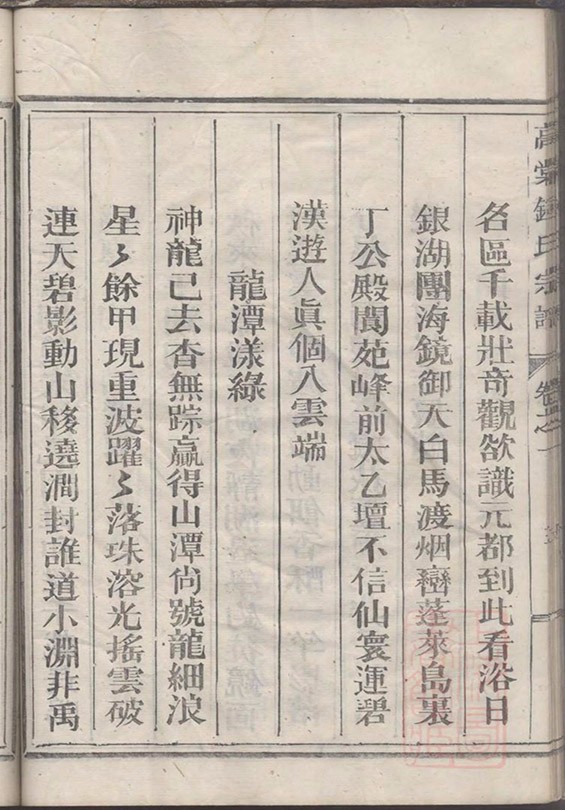 高棠鍾氏宗譜 卷之一
名區千載壯奇觀欲識元都到此看浴日
銀湖團海鏡御天白馬渡烟巒蓬萊島裏
丁公殿閬苑峰前太乙壇不信仙寰運碧
漢遊人眞個入雲端
龍潭漾綠
神龍已去杳無踪贏得山潭尙號龍細浪
星〻餘甲現重波躍〻落珠溶光搖雲破
連天碧影動山移遶澗封誰道小淵非禹